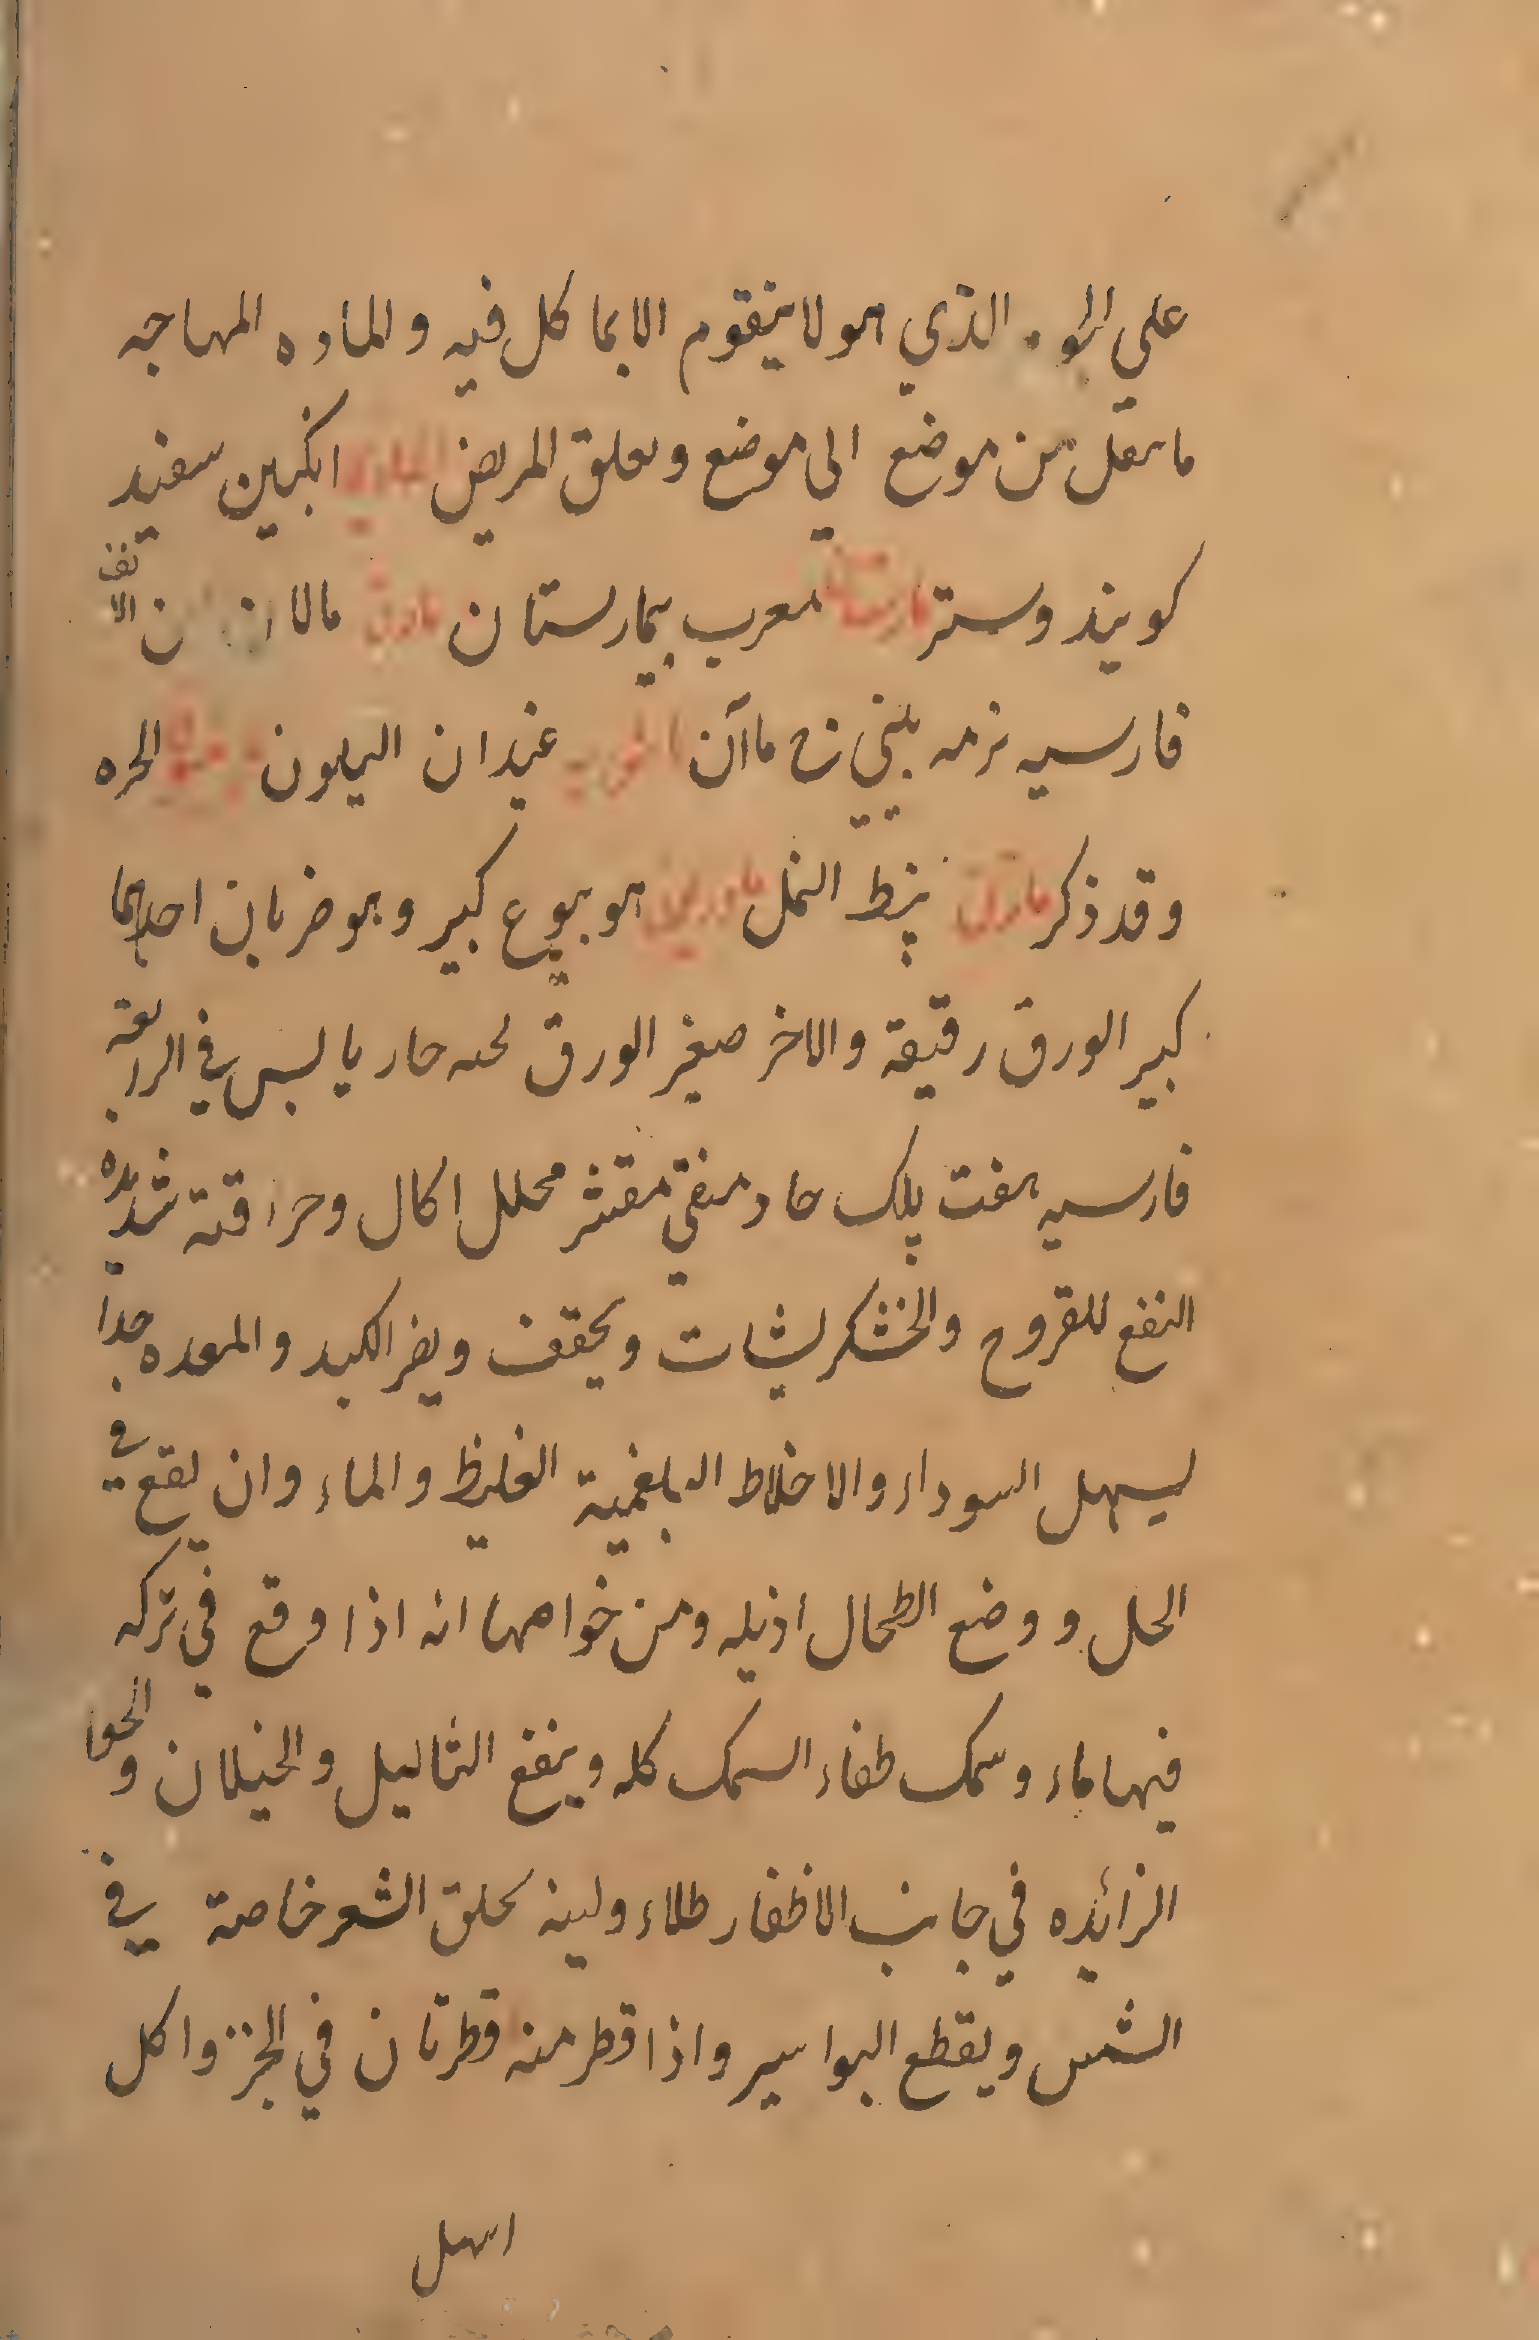 علي الجزء الذي هو لا يتقوم الا بما كل فيه والماده المهاجه
ما ىىقل من موضع الي موضع وىعلق المريض انكبين سفيد
كويند وستر معرب بيمارستان مالان ن الانف
فارسيه نرمه بيني زح ماآن عيدان البليون الحره
وقد ذكر بزط النمل هو يبوع كبير وهو ضربان احدهما
كبير الورق رقيقة والاخر صغير الورق ىحىه حار يابس في الرابعة
فارسيه هفت پلك حاد منقي مقشر محلل اكال وحراقته شديده
النفع للقروح والخشكريشات ويجفف ويضر الكبد والمعده جدا
يسهل السوداء والاخلاط البلغمية الغليظ والماء وان يقع في
الحل ووضع الطحال اذبله ومن خواصها انه اذا وقع في تركه
فيها ماء وسمك طفاء السمك كله وينفع الثاليل والخيلان و
الزائده في جانب الاظفار طلاء ولبنه يحلق الشعر خاصة في
الشمس ويقطع البواسير واذا قطر منه قطرتان في الخبز واكل
اسهل